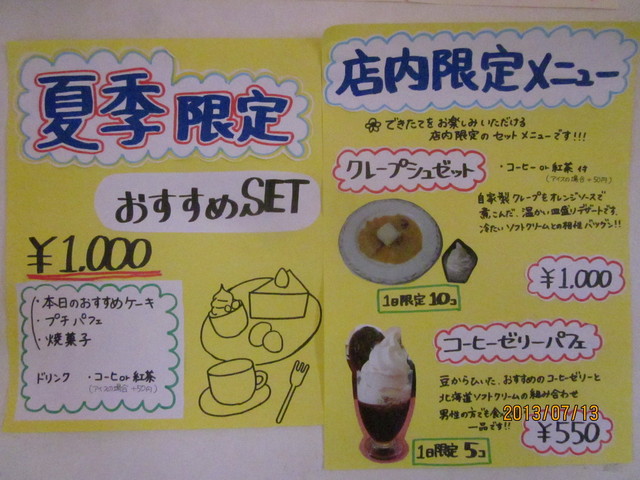 夏季限定
おすすめSET
¥1,000
・本日のおすすめケーキ
・プチパフェ
・焼菓子
ドリンク ・コーヒー or 紅茶
(アイスの場合+50円)
店内限定メニュー
できたてをお楽しみいただける
店内限定のセットメニューです!!!
クレープシュゼット
・コーヒー or 紅茶 付
(アイスの場合+50円)
自家製クレープをオレンジソースで
煮こんだ、温かい皿盛りデザートです。
冷たいソフトクリームとの相性バツグン!!
1日限定 10コ
¥1,000
コーヒーゼリーパフェ
豆からひいた、おすすめのコーヒーゼリーと
北海道ソフトクリームの組み合わせ
男性の方でも食
一品です!!
1日限定 5コ
¥550
2013/07/13